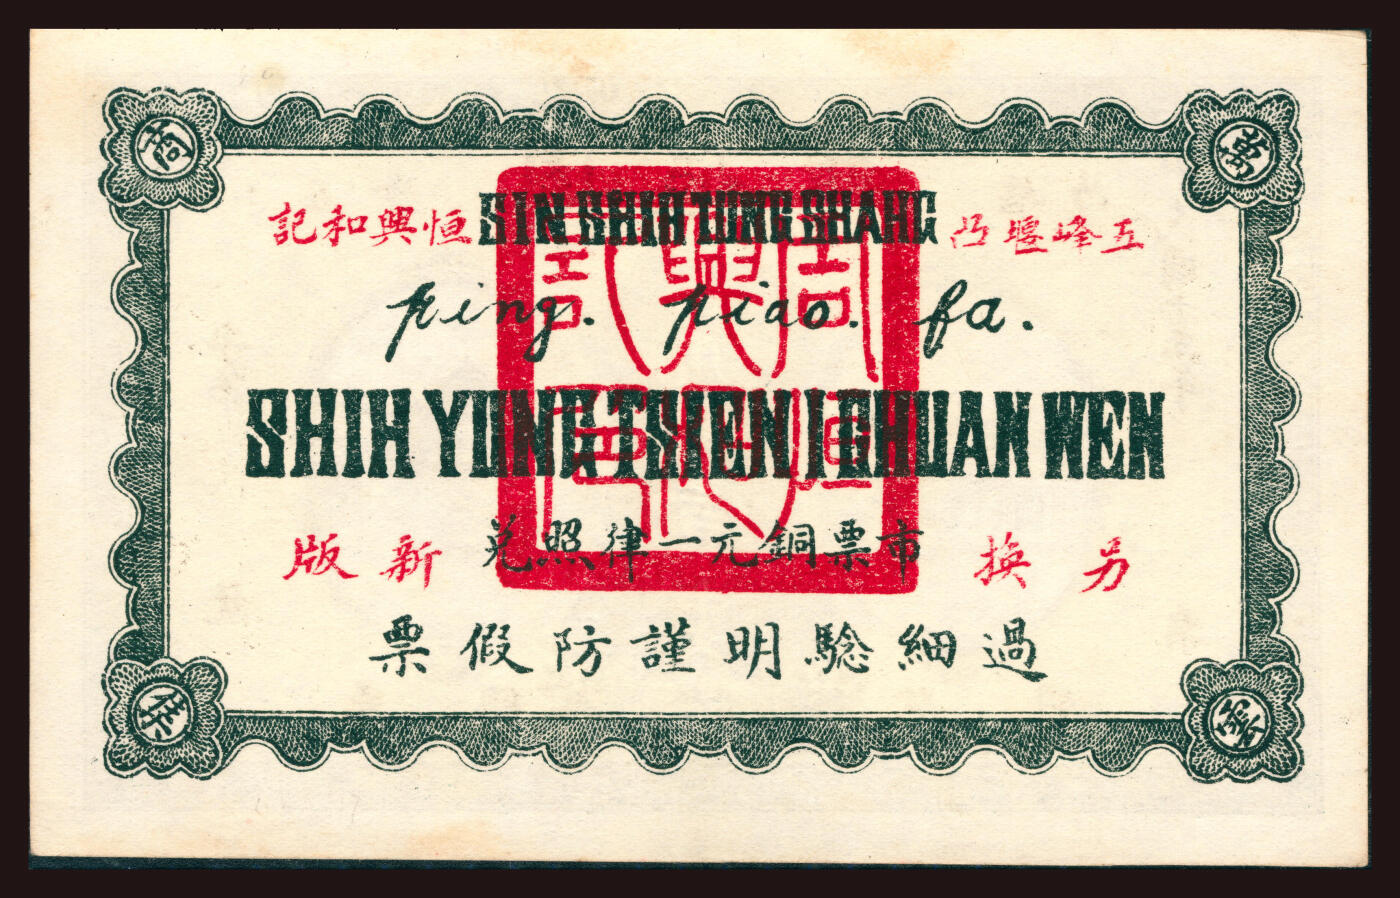 萬
五峰堰凸
SIN SHIH TUNG SHANG
恒興和記
ping. piao. fa.
SHIH YUNG TSIEN I CHUAN WEN
另換
市票銅元一律照兑
新版
過細騐明謹防假票